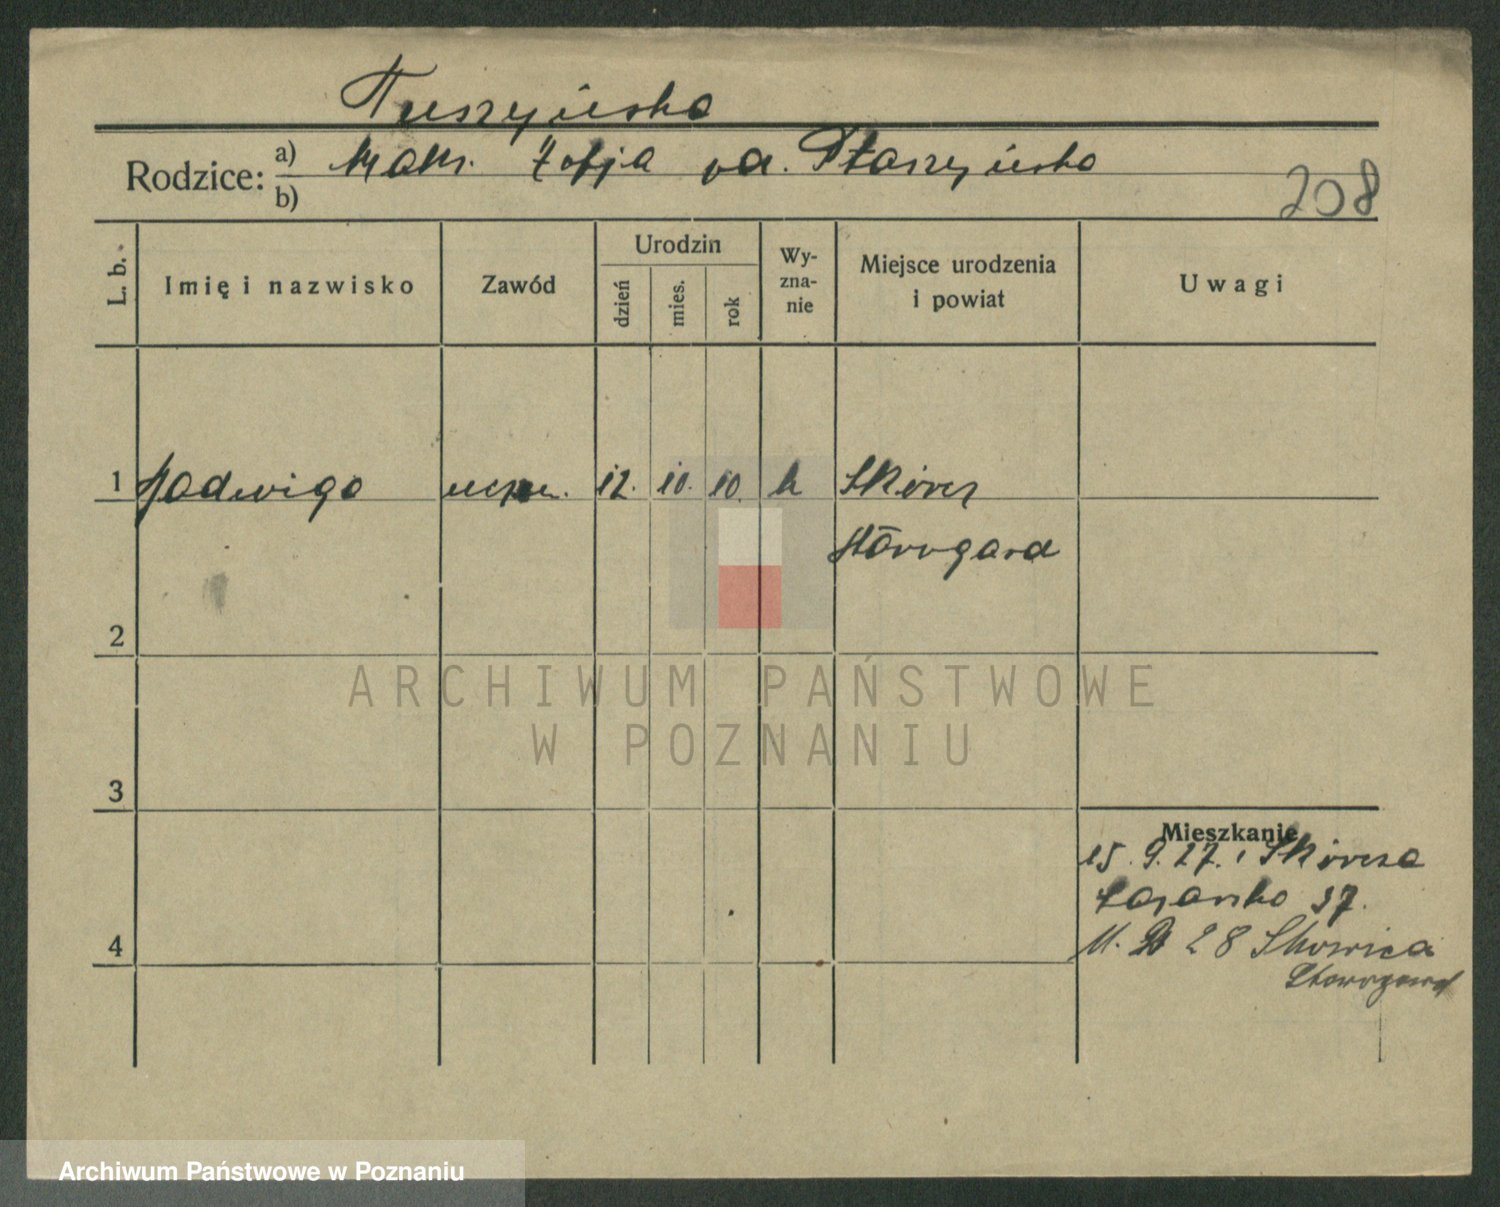 Tuszyńska
Rodzice: a) Maks. Zofja ur. Ptaszyńska
b)
208
L. b. Imię i nazwisko Zawód Urodzin dzień mies. rok Wy-zna-nie Miejsce urodzenia i powiat Uwagi
1 Jadwiga uczen. 12. 10. 10. k Skórcz
Starogard
2
3
Mieszkanie
15. 9. 27. z Skórcza
Łazarska 37.
4 28
Starogard
ARCHIWUM PAŃSTWOWE
W POZNANIU
Archiwum Państwowe w Poznaniu